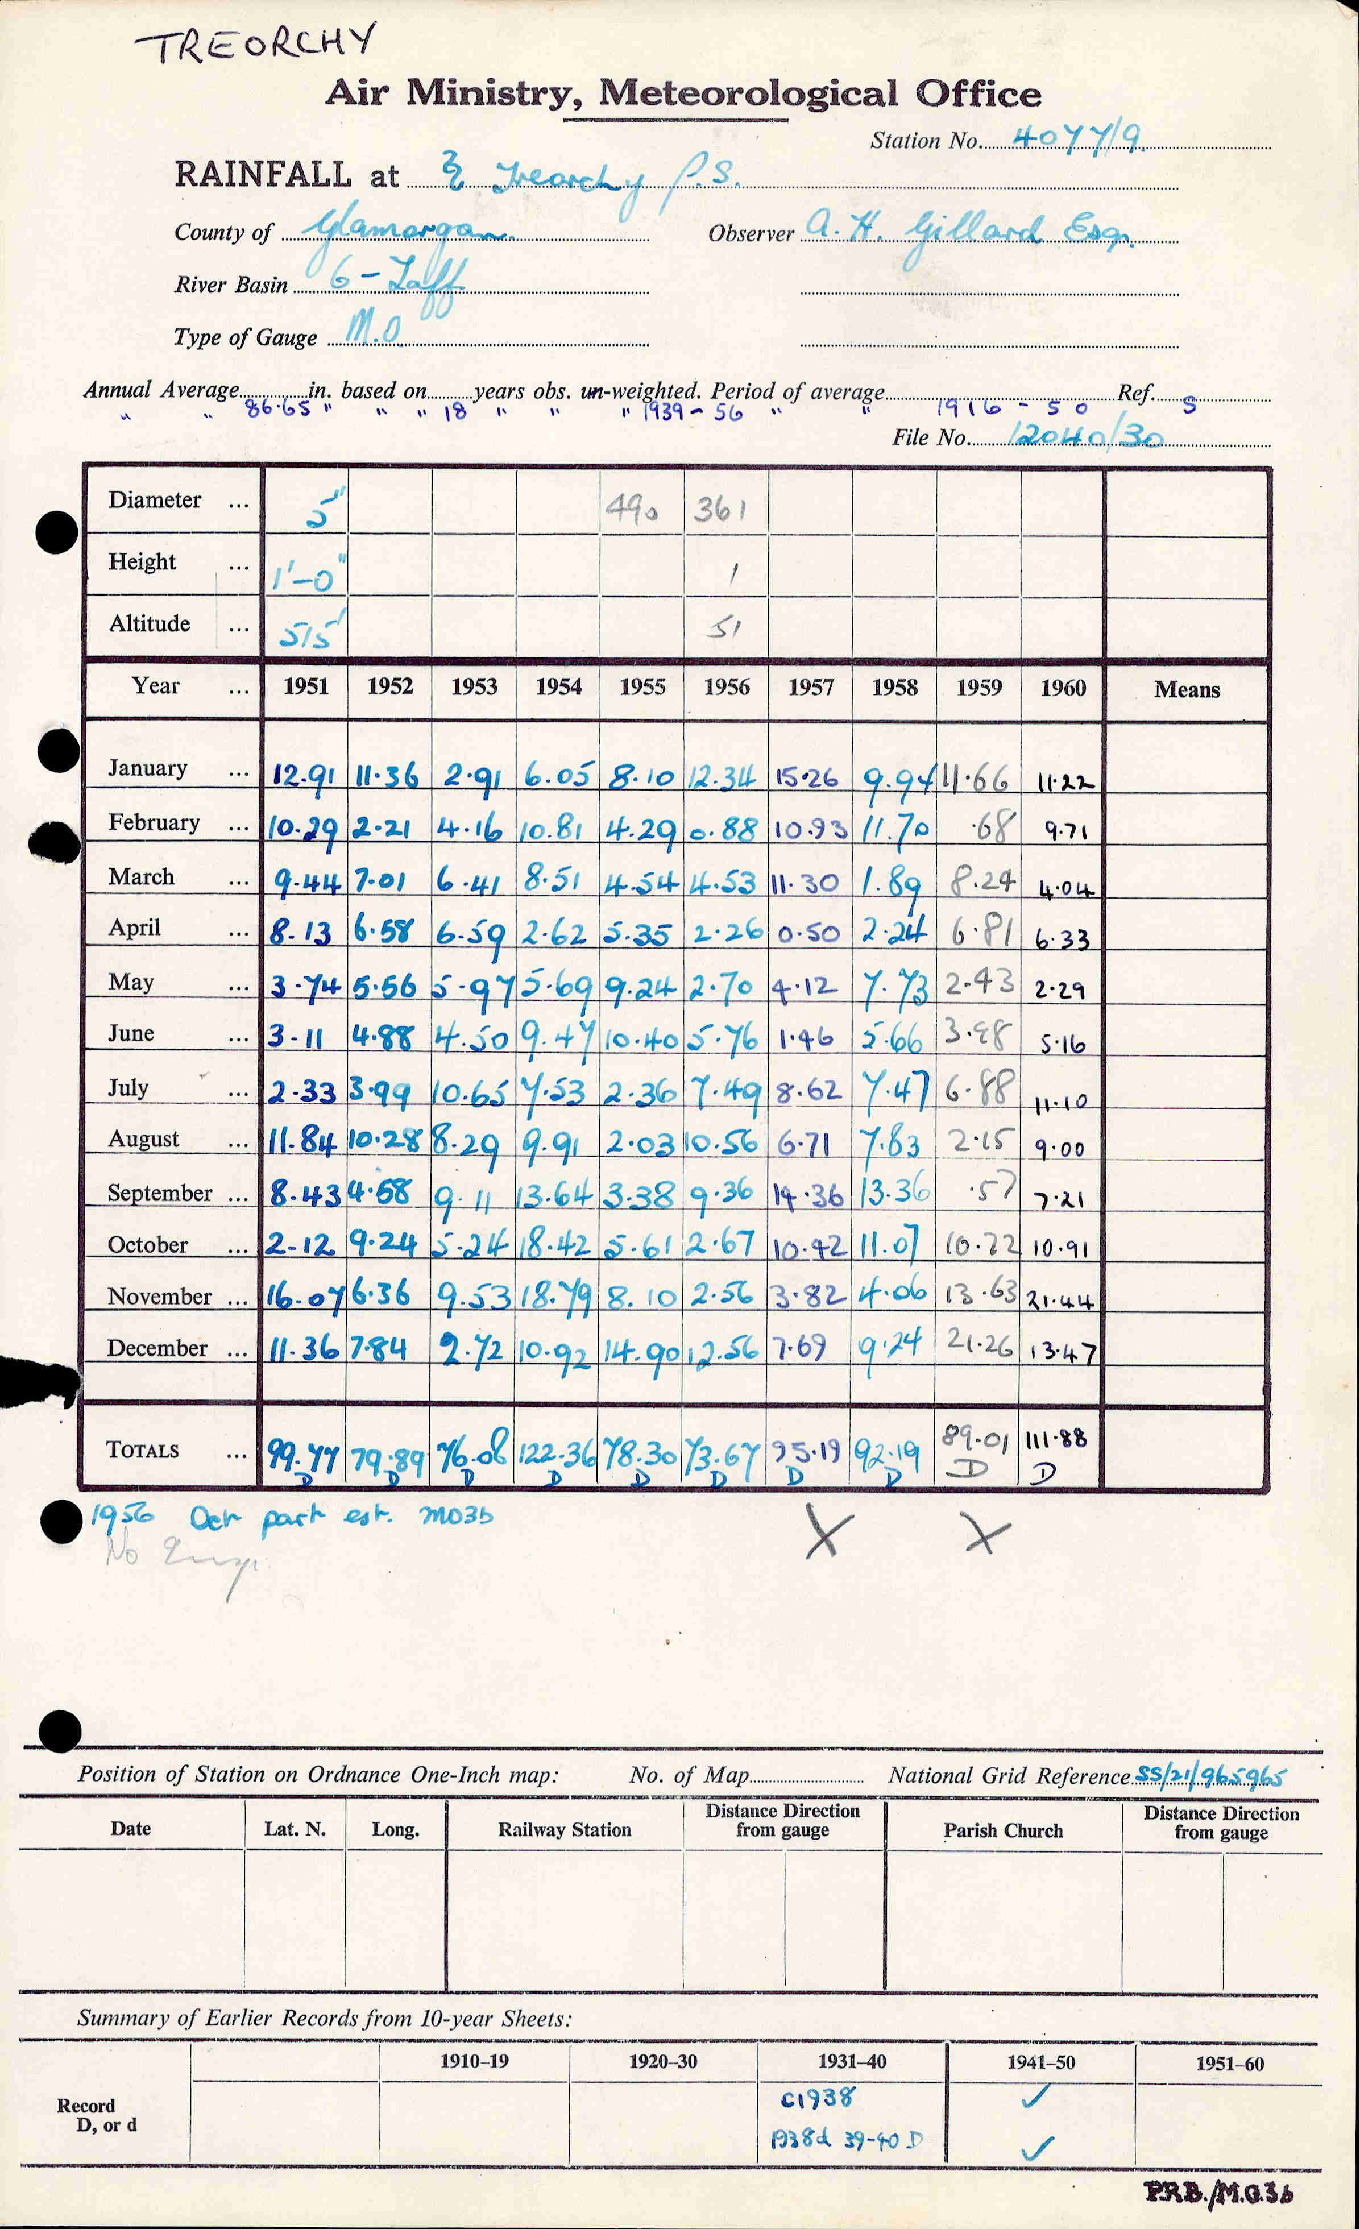 TREORCHY
Air Ministry, Meteorological Office
Station No. 4077/9.
RAINFALL at Treorchy P.S.
County of Glamorgan. Observer A. H. Gillard Esq.
River Basin 6 - Taff
Type of Gauge M.O
Annual Average in. based on years obs. un-weighted. Period of average Ref.
" " 86.65 " " " 18 " " " 1939-56 " " 1916-50 S
File No. 12040/30
Diameter ... 5" 490 361
Height ... 1'-0" 1
Altitude ... 515' 51
Year ... 1951 1952 1953 1954 1955 1956 1957 1958 1959 1960 Means
January ... 12.91 11.36 2.91 6.05 8.10 12.34 15.26 9.94 11.66 11.22
February ... 10.29 2.21 4.16 10.81 4.29 0.88 10.93 11.70 .68 9.71
March ... 9.44 7.01 6.41 8.51 4.54 4.53 11.30 1.89 8.24 4.04
April ... 8.13 6.58 6.59 2.62 5.35 2.26 0.50 2.24 6.81 6.33
May ... 3.74 5.56 5.97 5.69 9.24 2.70 4.12 7.73 2.43 2.29
June ... 3.11 4.88 4.50 9.47 10.40 5.76 1.46 5.66 3.98 5.16
July ... 2.33 3.99 10.65 7.53 2.36 7.49 8.62 7.47 6.88 11.10
August ... 11.84 10.28 8.29 9.91 2.03 10.56 6.71 7.83 2.15 9.00
September ... 8.43 4.58 9.11 13.64 3.38 9.36 14.36 13.36 .57 7.21
October ... 2.12 9.24 5.24 18.42 5.61 2.67 10.42 11.07 10.72 10.91
November ... 16.07 6.36 9.53 18.79 8.10 2.56 3.82 4.06 13.63 21.44
December ... 11.36 7.84 2.72 10.92 14.90 12.56 7.69 9.24 21.26 13.47
TOTALS ... 99.77 79.89 76.08 122.36 78.30 73.67 95.19 92.19 89.01 111.88
D D D D D D D D D D
1956 Oct part est. M03b X X
No
Position of Station on Ordnance One-Inch map: No. of Map National Grid Reference SS/21/965965
Date Lat. N. Long. Railway Station Distance Direction from gauge Parish Church Distance Direction from gauge
Summary of Earlier Records from 10-year Sheets:
1910–19 1920–30 1931–40 1941–50 1951–60
Record C1938 ✓
D, or d 1938d 39-40 D ✓
P.R.B./M.O.3b